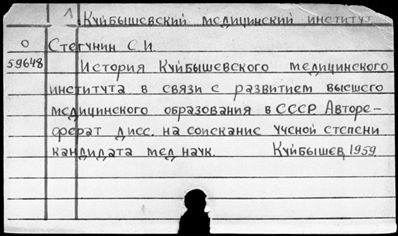 1. Куйбышевский медицинский институт
О Стегунин С. И.
59648 История Куйбышевского медицинского
института в связи с развитием высшего
медицинского образования в СССР. Авторе-
ферат дисс. на соискание ученой степени
кандидата мед. наук. Куйбышев, 1959